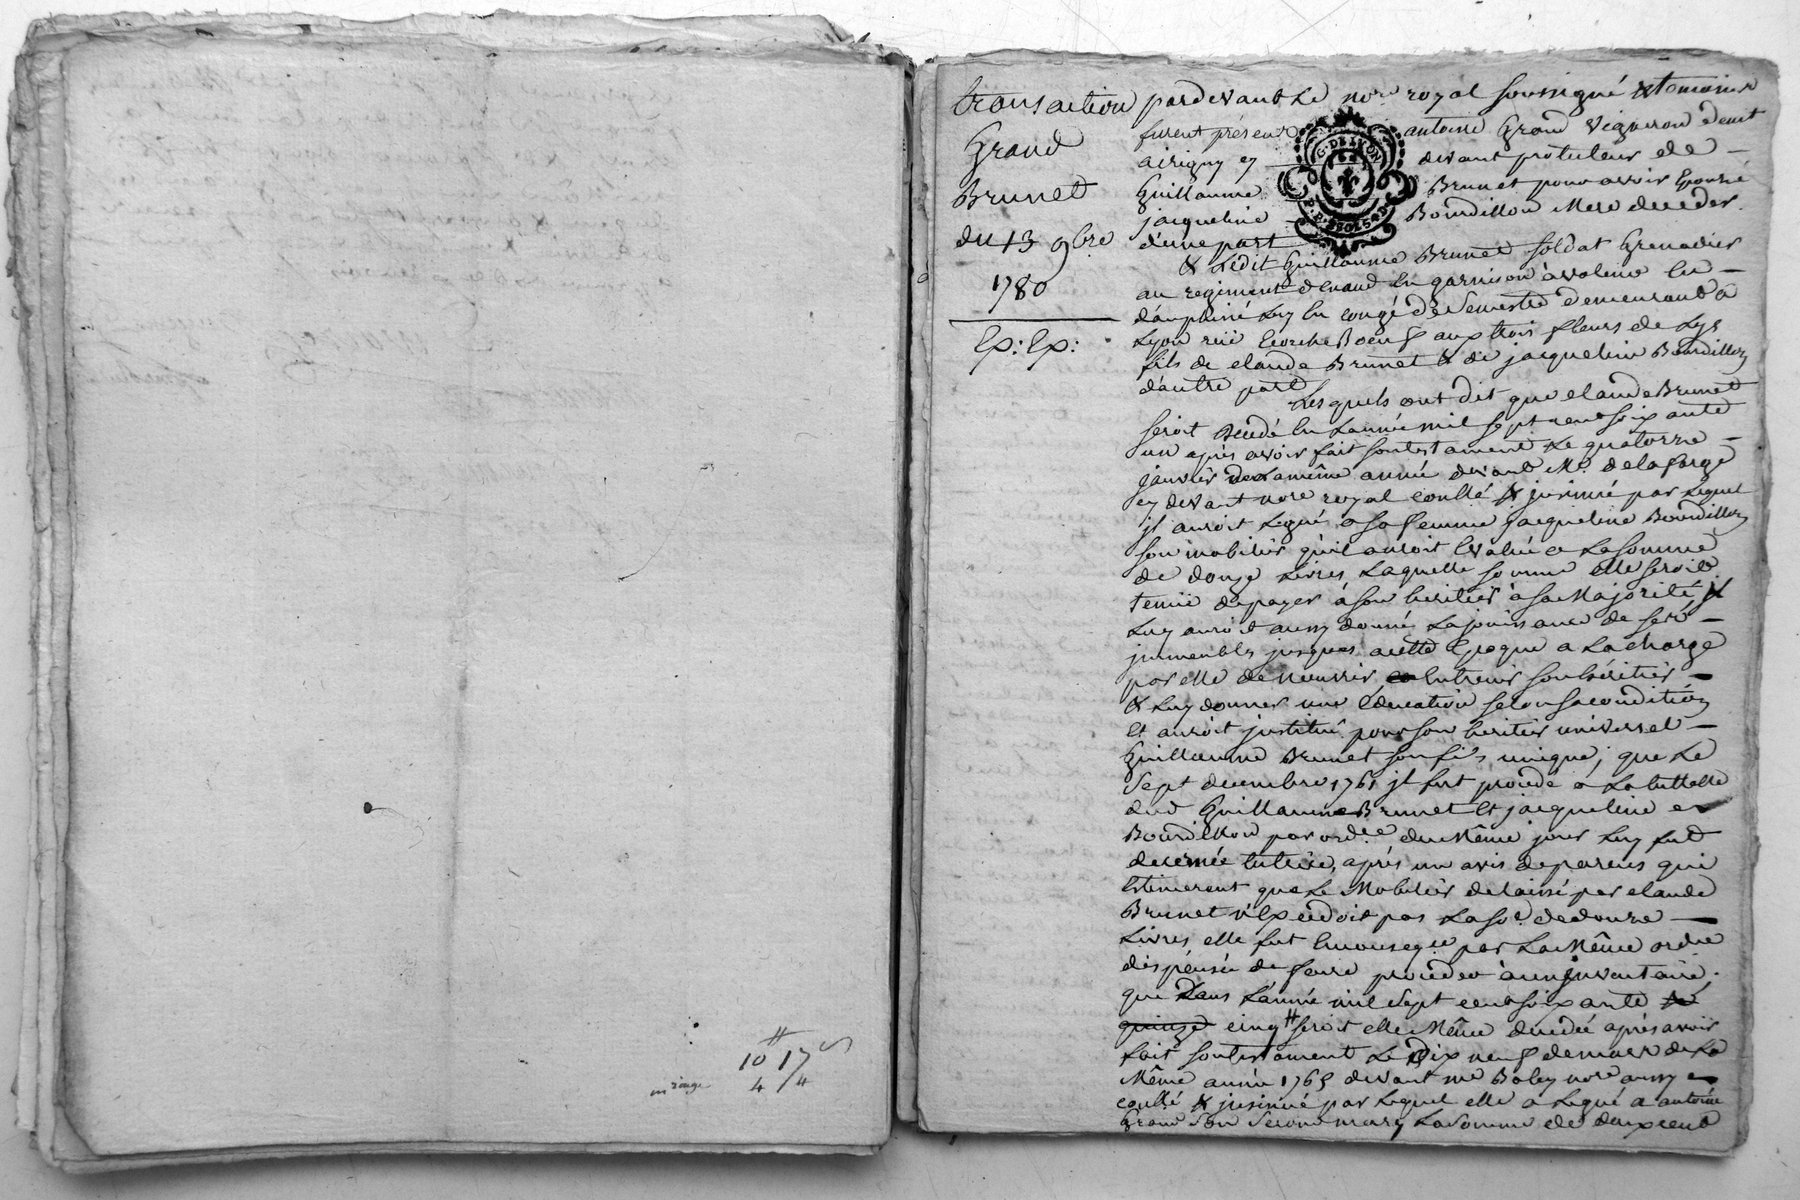 10 17
4 4
transaction
Grand
Brunet
du 13 9bre
1780
Ex: Ex:
pardevant Le nore royal soussigné & temoins
furent présens antoine Grand vigneron demt
a irigny cy devant protuteur de
Guillaume Brunet pour avoir Epousé
jacqueline Bourdillon Mere decedée
d'une part
G. DE LYON
& Ledit Guillaume Brunet soldat Grenadier
au regiment en garnison à valence en
dauphiné Luy en congé de Semestre demeurant a
Lyon rüe Ecorche Boeuf aux trois fleurs de Lys
fils de claude Brunet & de jacqueline Bourdillon
d'autre part
Lesquels ont dit que claude Brunet
seroit Decedé En Lannée mil sept cent soixante
un après avoir fait son testament Le quatorze
janvier de la même année devant Me delaforge
cy devant nore royal conllé & jnsinué par Lequel
jl auroit Legué a sa femme jacqueline Bourdillon
son mobilier qu'il auroit Evalué a La somme
de douze Livres, Laquelle somme elle seroit
tenüe de payer à son heritier à sa Majorité &
Luy auroit aussy donné La jouissance de ses
jmmeubles jusques a cette Epoque a La charge
par elle de nourrir, Entretenir son héritier
& Luy donner une éducation selon sa condition
Et auroit jnstitué pour son heritier universel
Guillaume Brunet son fils unique; que Le
sept decembre 1761 jl fut procédé a La tuttelle
dud Guillaume Brunet Et jacqueline
Bourdillon par ordce du Même jour Luy fut
decernée tutrice, après un avis de parens qui
Estimerent que Le Mobilier delaissé par claude
Brunet n'Excedoit pas La se de douze
Livres, elle fut par La Même ordce
dispensée de faire procéder à un jnventaire.
que Dans L'année mil sept cent soixante
quinze cinq seroit elle Même decedée après avoir
fait son testament Le Dix neuf de mars de La
Même année 1765 devant me nore aussy
conllé & jnsinué par Lequel elle a Legué a antoine
Grand Son Second mary La Somme de deux cent